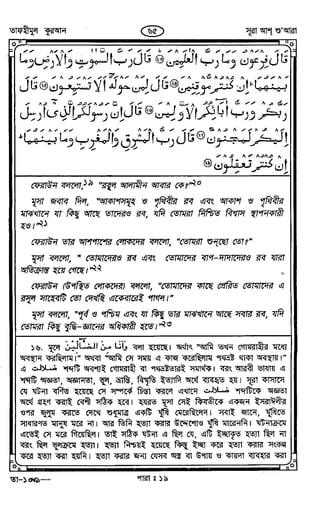 তাফহীমুল কুরআন ৬৫ সূরা আশ্ শু'আরা
قَالَ فِرْعَوْنُ وَمَا رَبُّ الْعٰلَمِيْنَ ﴿٢٣﴾ قَالَ رَبُّ السَّمٰوٰتِ وَالْاَرْضِ وَمَا
بَيْنَهُمَا ؕ اِنْ كُنْتُمْ مُّوْقِنِيْنَ ﴿٢٤﴾ قَالَ لِمَنْ حَوْلَهٗۤ اَلَا تَسْتَمِعُوْنَ ﴿٢٥﴾ قَالَ
رَبُّكُمْ وَرَبُّ اٰبَآئِكُمُ الْاَوَّلِيْنَ ﴿٢٦﴾ قَالَ اِنَّ رَسُوْلَكُمُ الَّذِيْۤ اُرْسِلَ
اِلَيْكُمْ لَمَجْنُوْنٌ ﴿٢٧﴾ قَالَ رَبُّ الْمَشْرِقِ وَالْمَغْرِبِ وَمَا بَيْنَهُمَا ؕ
اِنْ كُنْتُمْ تَعْقِلُوْنَ ﴿٢٨﴾
ফেরাউন বললো,১৯ "রব্বুল আলামীন আবার কে?"২০
মূসা জবাব দিল, "আকাশসমূহ ও পৃথিবীর রব এবং আকাশ ও পৃথিবীর
মাঝখানে যা কিছু আছে তাদেরও রব, যদি তোমরা নিশ্চিত বিশ্বাস স্থাপনকারী
হও।"২১
ফেরাউন তার আশপাশের লোকদের বললো, "তোমরা শুনছো তো?"
মূসা বললো, "তোমাদেরও রব এবং তোমাদের বাপ-দাদাদেরও রব যারা
অতিক্রান্ত হয়ে গেছে।"২২
ফেরাউন (উপস্থিত লোকদের) বললো, "তোমাদের কাছে প্রেরিত তোমাদের এ
রসূল সাহেবটি তো দেখছি একেবারেই পাগল।"
মূসা বললো, "পূর্ব ও পশ্চিম এবং যা কিছু তার মাঝখানে আছে সবার রব, যদি
তোমরা কিছু বুদ্ধি-জ্ঞানের অধিকারী হতে।"২৩
১৬. মূলে وَاَنَا مِنَ الضَّآلِّيْنَ বলা হয়েছে। অর্থাৎ "আমি তখন গোমরাহীর মধ্যে
অবস্থান করছিলাম।" অথবা "আমি সে সময় এ কাজ করেছিলাম পথভ্রষ্ট থাকা অবস্থায়।"
এ ضلالت শব্দটি অবশ্যই গোমরাহী বা পথভ্রষ্টতারই সমার্থক। বরং আরবী ভাষায় এ
শব্দটি অজ্ঞতা, অজ্ঞানতা, ভুল, ভ্রান্তি, বিস্মৃতি ইত্যাদি অর্থে ব্যবহৃত হয়। সূরা কাসাসে
যে ঘটনা বর্ণিত হয়েছে সে সম্পর্কে চিন্তা করলে এখানে ضلالت শব্দটিকে অজ্ঞতা
অর্থে গ্রহণ করাই বেশী সঠিক হবে। হযরত মূসা সেই কিবতীকে একজন ইসরাঈলীর
ওপর জুলুম করতে দেখে শুধুমাত্র একটি ঘুঁষি মেরেছিলেন। সবাই জানে, ঘুঁষিতে
সাধারণত মানুষ মরে না। আর তিনি হত্যা করার উদ্দেশ্যেও ঘুঁষি মারেননি। ঘটনাক্রমে
এতেই সে মরে গিয়েছিল। তাই সঠিক ঘটনা এ ছিল যে, এটি ইচ্ছাকৃত হত্যা ছিল না
বরং ছিল ভুলক্রমে হত্যা। হত্যা নিশ্চয়ই হয়েছে কিন্তু ইচ্ছা করে হত্যা করার সংকল্প
করে হত্যা করা হয়নি। হত্যা করার জন্য যেসব অস্ত্র বা উপায় ও কায়দা ব্যবহার করা
তা-১০/৯— পারা : ১৯